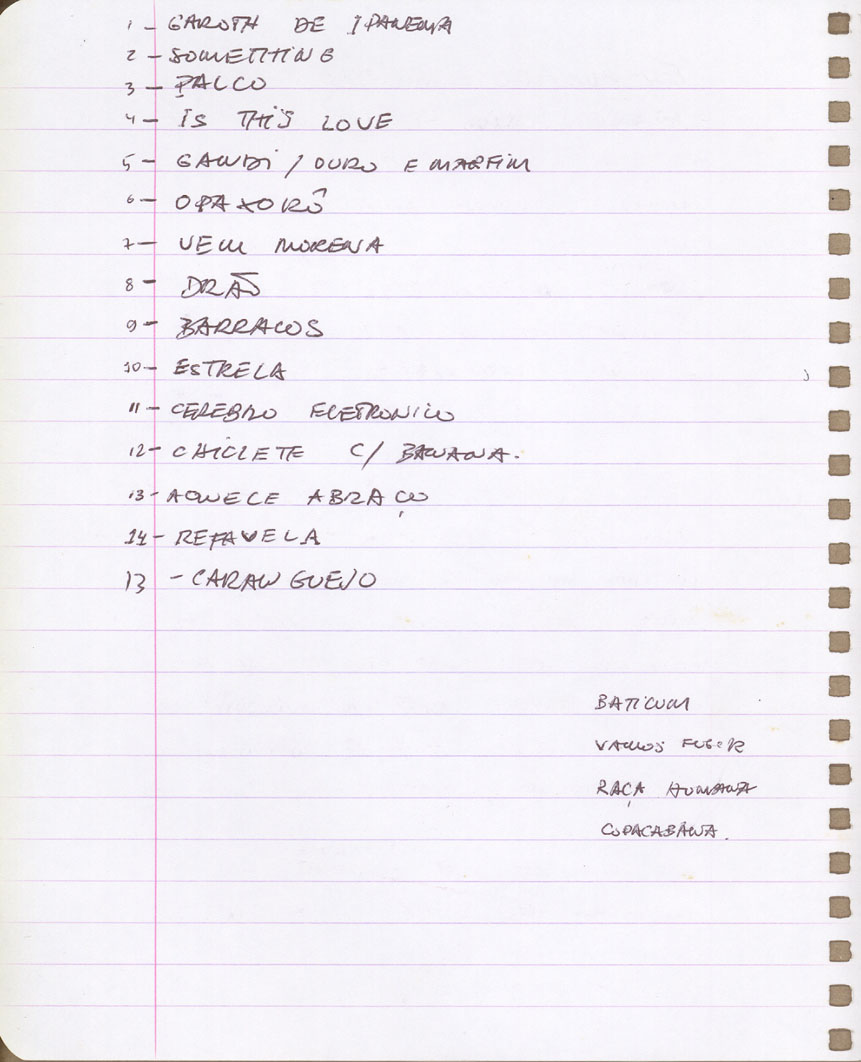 1 - GAROTA DE IPANEMA
2 - SOMETTHING
3 - PALCO
4 - IS THIS LOVE
5 - GANDI / OURO E MARFIM
6 - OPAXORÔ
7 - VEM MORENA
8 - DRÃO
9 - BARRACOS
10 - ESTRELA
11 - CEREBRO ELETRONICO
12 - CHICLETE C/ BANANA.
13 - AQUELE ABRAÇO
14 - REFAVELA
13 - CARANGUEJO
BATICUM
VAMOS FUGIR
RAÇA HUMANA
COPACABANA.